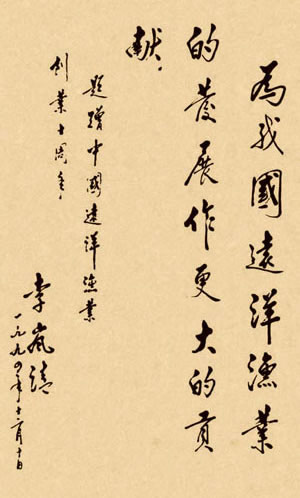 為我國遠洋漁業
的發展作更大的貢
献。
題贈中國遠洋漁業
创業十周年。
李岚清
一九九四年十二月十日